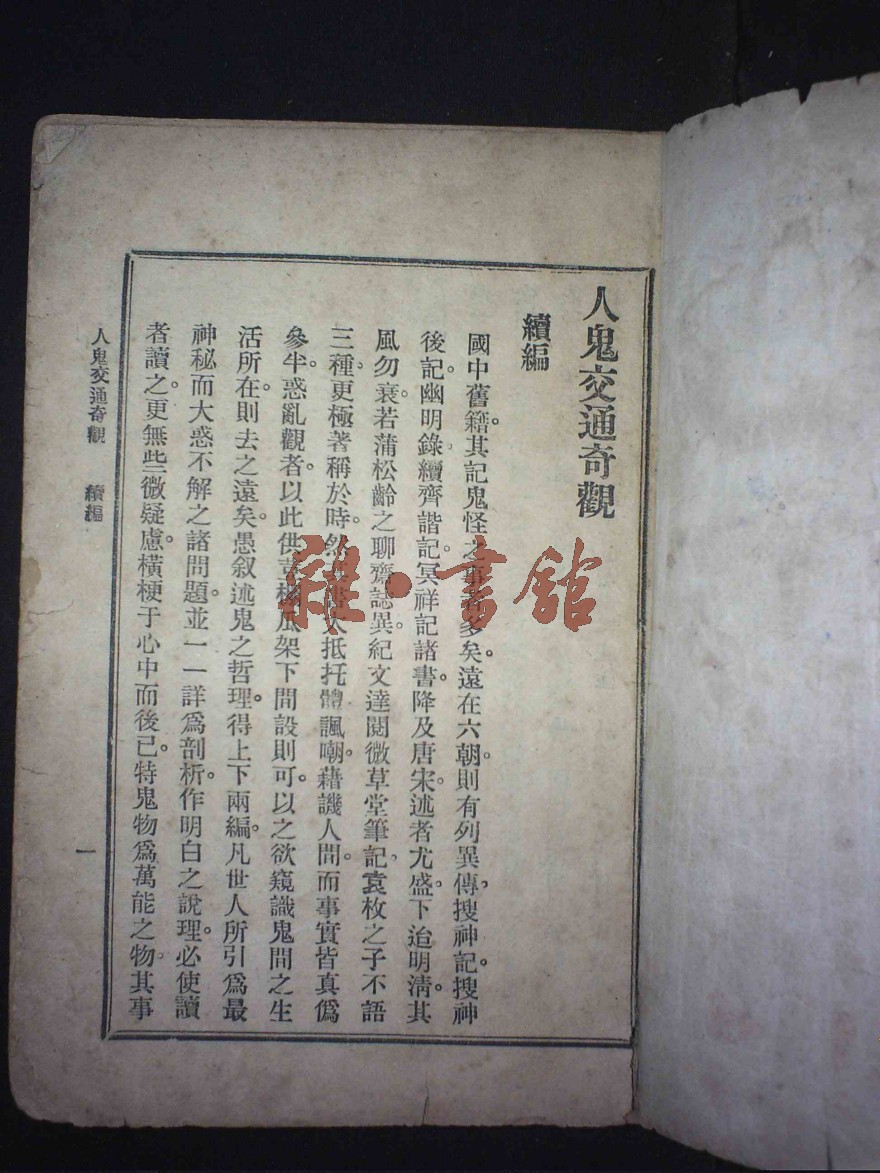 人鬼交通奇觀
續編
國中舊籍。其記鬼怪之事者多矣。遠在六朝。則有列異傳。搜神記。搜神
後記。幽明錄。續齊諧記。冥祥記諸書。降及唐宋。述者尤盛。下迨明淸。其
風勿衰。若蒲松齡之聊齋誌異。紀文達閱微草堂筆記。袁枚之子不語
三種。更極著稱於時。然書大抵托體諷嘲。藉譏人間。而事實皆真僞
參半。惑亂觀者。以此供豆棚瓜架下間設則可。以之欲窺識鬼間之生
活所在。則去之遠矣。愚叙述鬼之哲理。得上下兩編。凡世人所引爲最
神秘而大惑不解之諸問題。並一一詳爲剖析。作明白之說理。必使讀
者讀之。更無些微疑慮。橫梗于心中而後已。特鬼物爲萬能之物。其事
人鬼交通奇觀 續編
一
雜·書館